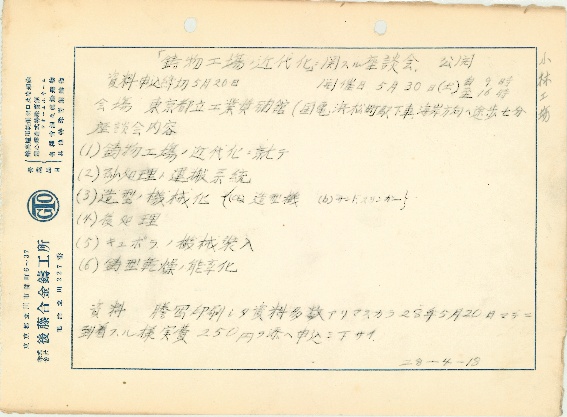 「鋳物工場ノ近代化ニ関スル座談会」公開
資料申込締切5月20日 開催日 5月30日(土) 自9時 至16時
会場 東京都立工業奨励館(国電浜松町駅下車海岸方向へ徒歩七分
座談会内容
(1)鋳物工場ノ近代化ニ就テ
(2)砂処理ノ運搬系統
(3)造型ノ機械化 {(a)造型機 (b)サンドスリンガー}
(4)後処理
(5)キュポラノ機械装入
(6)鋳型乾燥ノ能率化
資料 謄写印刷シタ資料多数アリマスカラ28年5月20日マデニ
到着スル様実費250円ヲ添ヘ申込ミ下サイ
28-4-18
小林工場
GTO
株式会社 後藤合金鋳工所
東京都